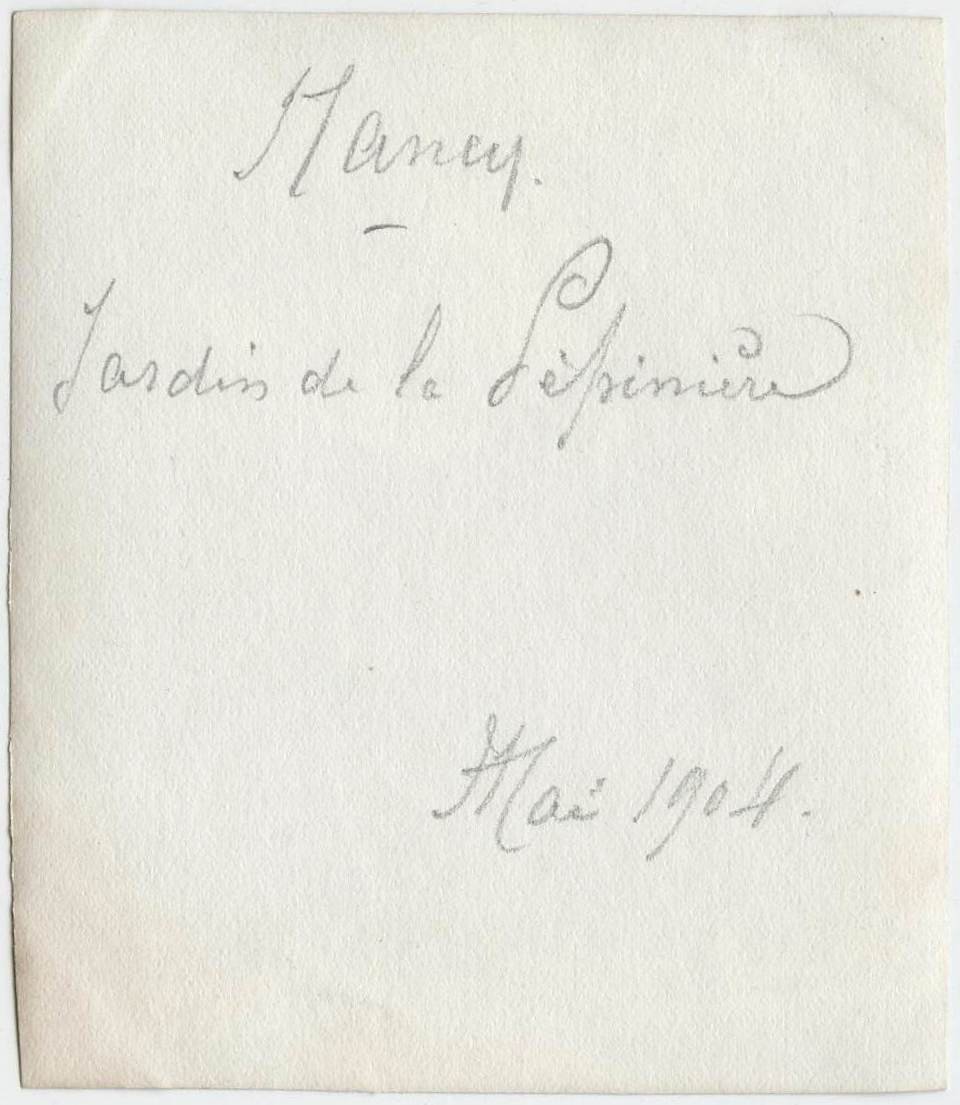 Nancy.
Jardin de la Pépinière
Mai 1904.